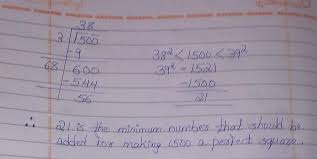 38
3 | 1500
-9
68 | 600
-544
56
38² < 1500 < 39²
39² = 1521
-1500
21
∴ 21 is the minimum number that should be
added for making 1500 a perfect square.